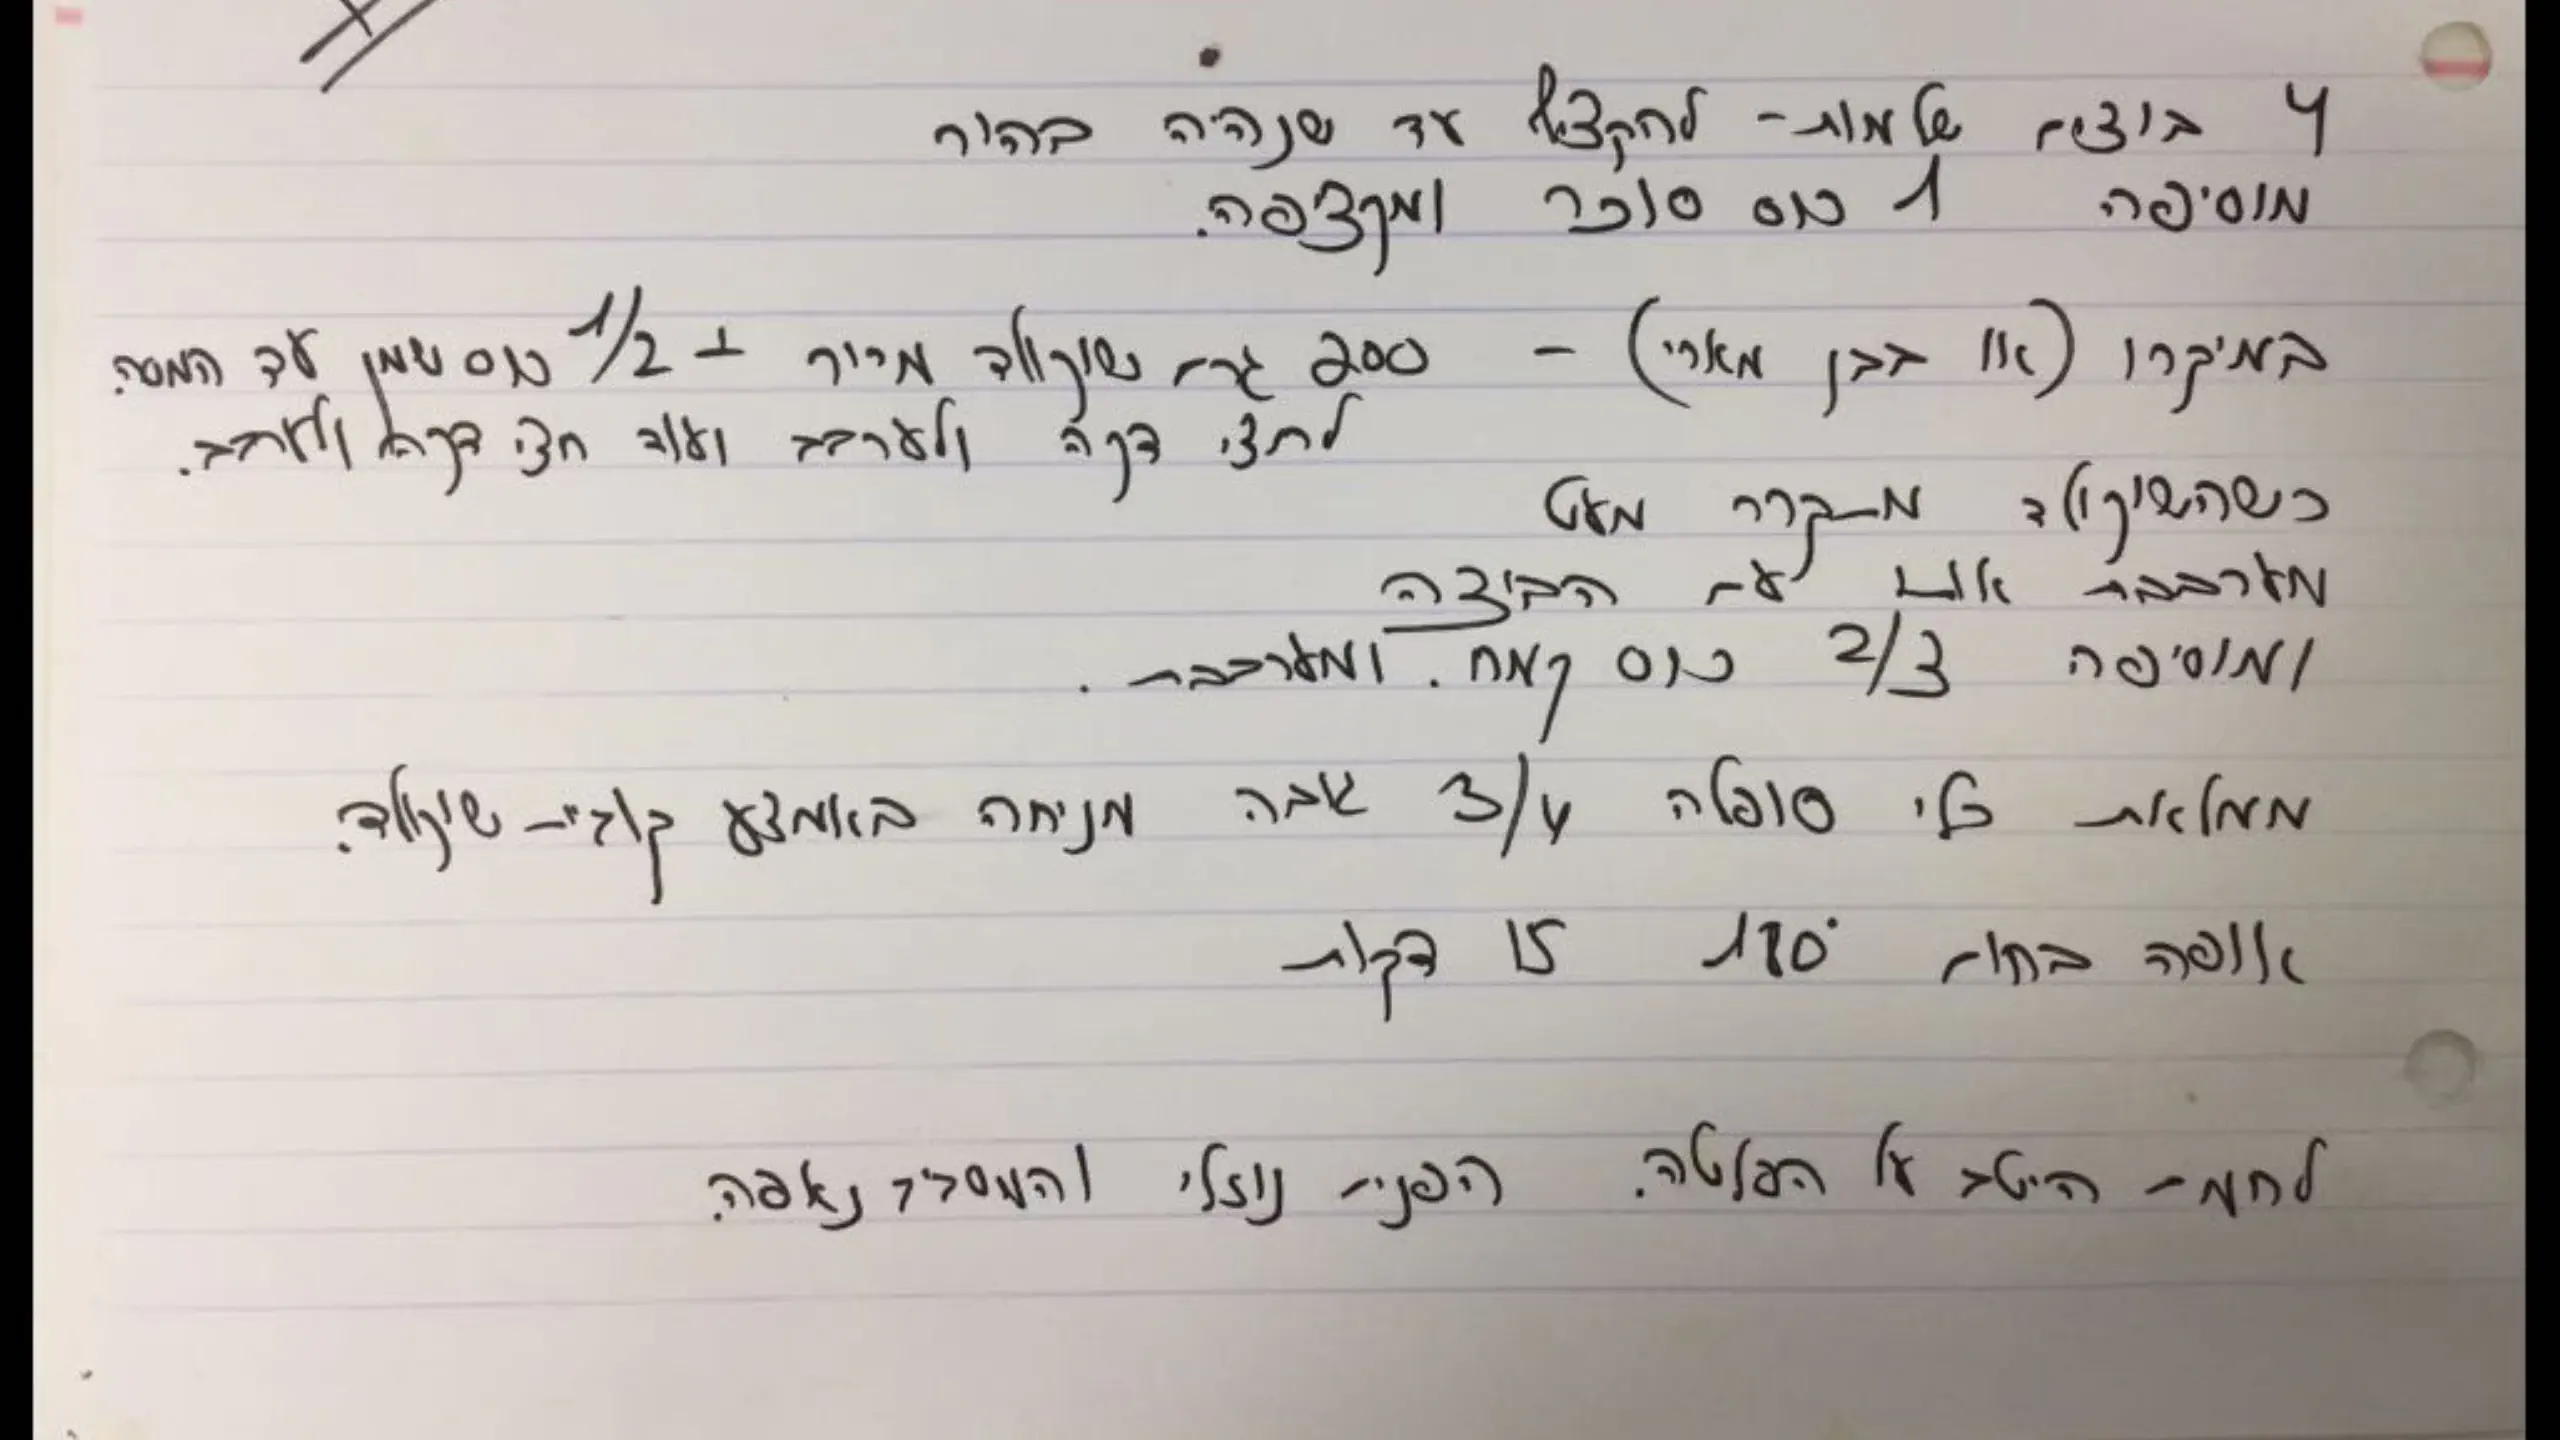 4 ביצים שלמות - להקציף עד שנהיה בהיר
מוסיפה 1 כוס סוכר ומקציפה.
במיקרו (או בבן מארי) - 200 גרם שוקולד מריר + 1/2 כוס שמן עד המסה.
לחצי דקה ולערבב ועוד חצי דקה ולערבב.
כשהשוקולד מתקרר מעט
מערבבת אותו עם הביצה
ומוסיפה 2/3 כוס קמח. ומערבבת.
ממלאת כלי סופלה 3/4 גובה מניחה באמצע קוביית שוקולד.
אופה בחום 180° 15 דקות
לחמם היטב על הפלטה. הפנים נוזלי והמסביב נאפה.